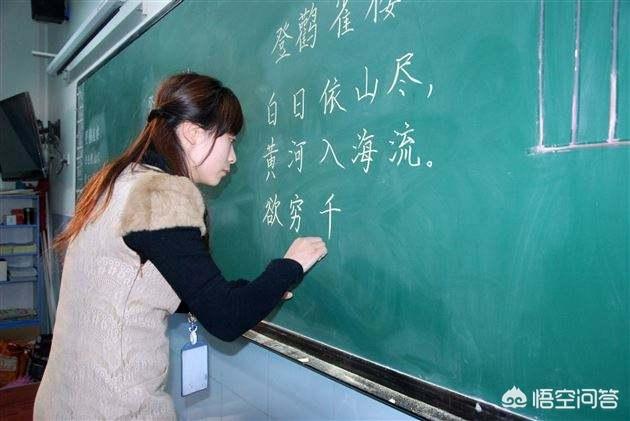 登鹳雀楼
白日依山尽，
黄河入海流。
欲穷千
悟空问答